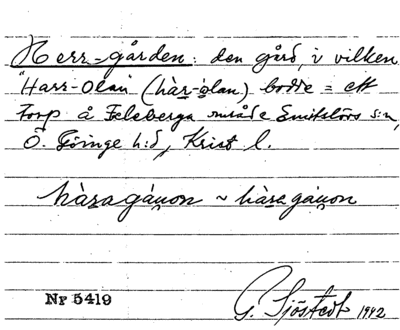 Herr=gården: den gård, i vilken
"Harr-Olan (hàr-ólan) bodde = ett
torp å Feleberga område Emitslövs s:n,
Ö. Göinge h:d, Krist l.
hàragáuon ~ hàragáuon
Nr 5419
G. Sjöstedt 1942